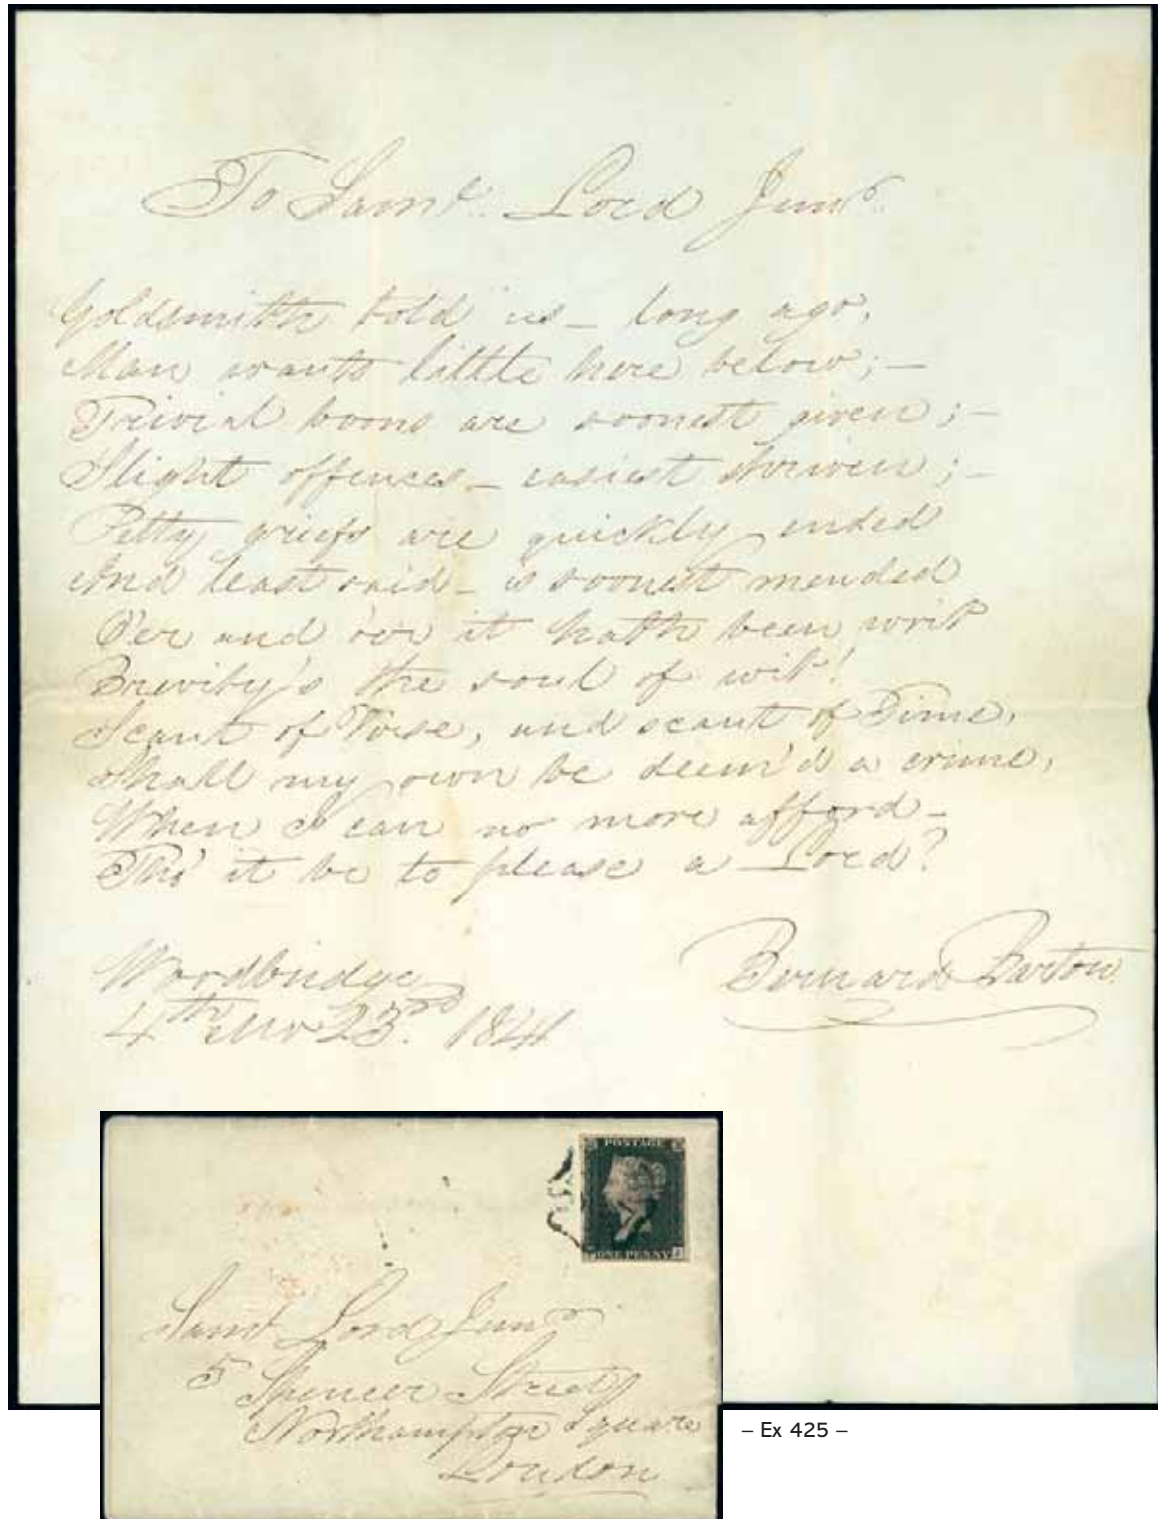 To Saml. Lord Junr.
Goldsmith told us – long ago,
Man wants little here below; –
Trivial boons are soonest given; –
Slight offences – easiest shriven; –
Petty griefs are quickly ended
And least said – is soonest mended
O'er and o'er it hath been writ
Brevity's the soul of wit!
Scant of Verse, and scant of Time,
Shall my own be deem'd a crime,
When I can no more afford –
Tho' it be to please a Lord?
Bernard Barton
Woodbridge
4th mo 23rd. 1841
POSTAGE
ONE PENNY
Saml Lord Junr
5 Spencer Street
Northampton Square
London
– Ex 425 –